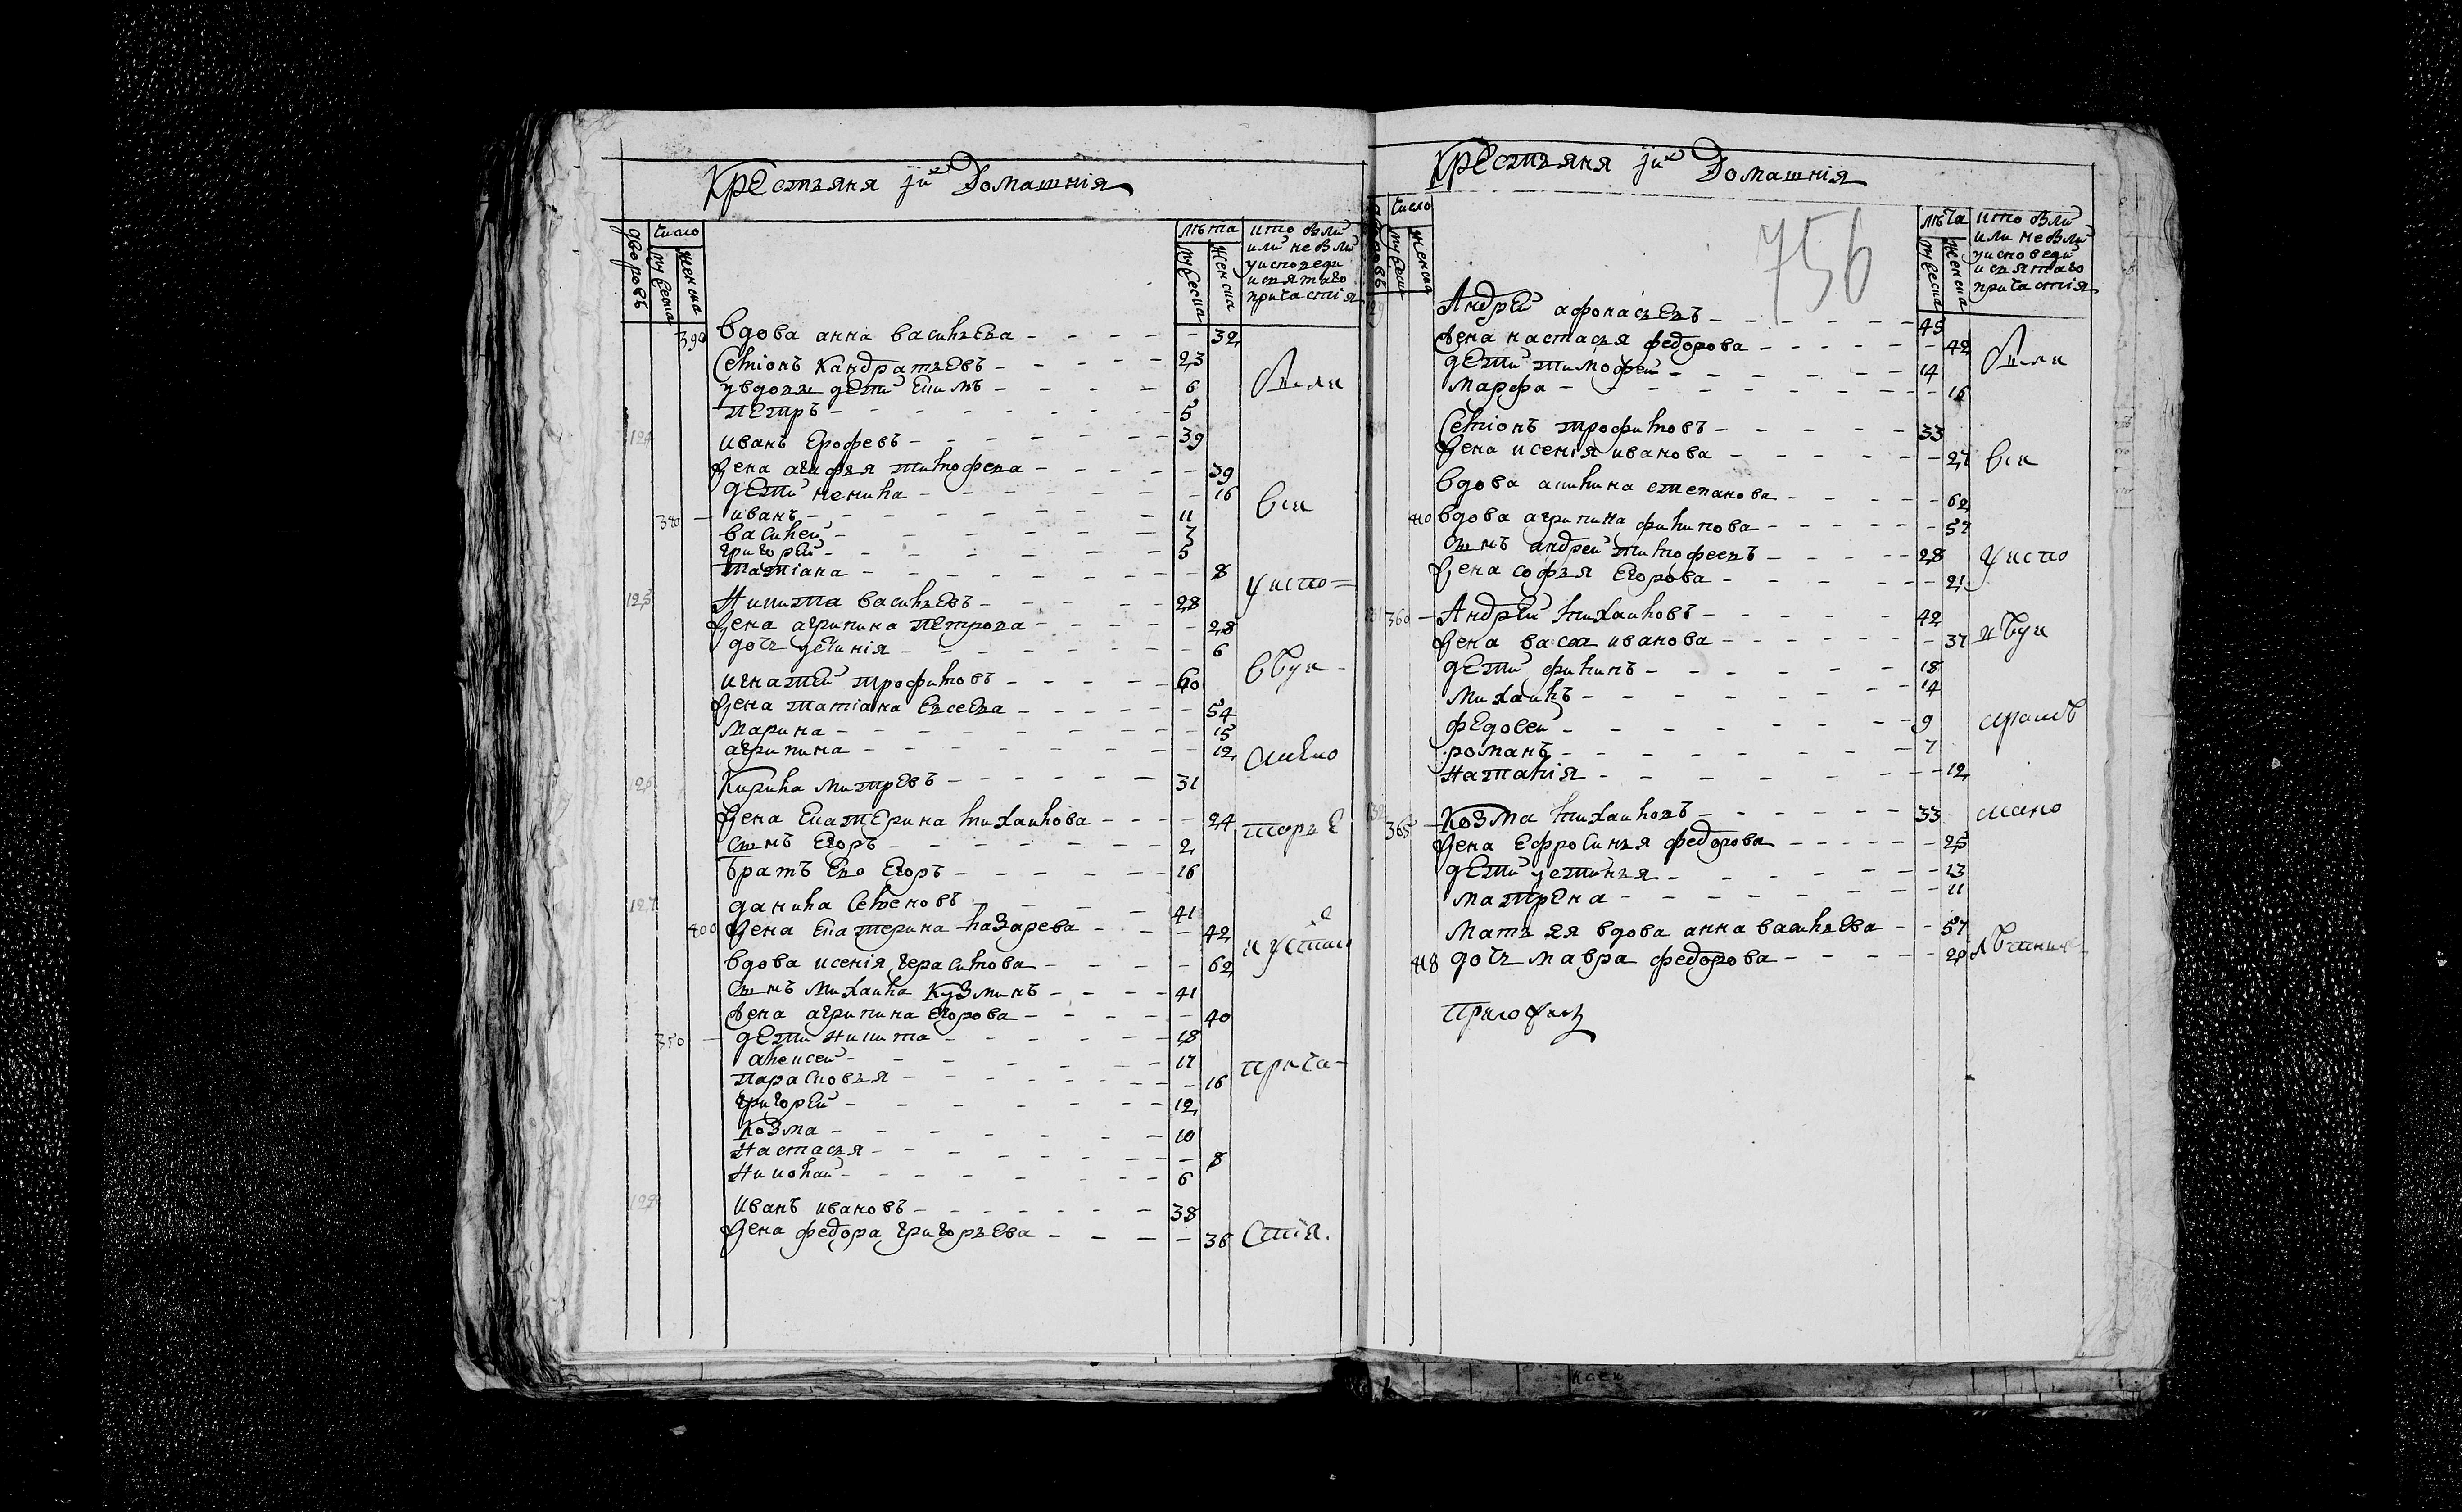 Крестьяня их домашнія
дворовъ
число
мужеска
женска
лѣта
мужеска
женска
кто были
или не были
у исповеди
и святаго
причастія
390 вдова анна васильева - 32
Семіонъ Кандратьевъ - 23
у вдовы дети Екимъ - 6
петръ - 5
124 иванъ Ерофевъ - 39
жена агафья тимофева - 39
дети ненила - 16
340 - иванъ - 11
василей - 7
григорей - 5
татіана - 8
125 Никита васильевъ - 28
жена агрипина петрова - 28
дочь устинія - 6
игнатей трофимовъ - 60
жена татіана Евсева - 54
марина - 15
агрипина - 12
126 Кирила митревъ - 31
жена Екатерина михаилова - 24
сынъ Егоръ - 2
братъ Ево Егоръ - 16
127 данила Семеновъ - 41
400 жена Екатерина лазарева - 42
вдова ксенія герасимова - 62
сынъ михаила Кузминъ - 41
жена агрипина Егорова - 40
350 - дети никита - 18
алексей - 17
парасковья - 16
григорей - 12
Козма - 10
настасья - 8
николай - 6
128 иванъ ивановъ - 38
жена федора григорьева - 36
были
все
у испо=
прича-
стія.
Крестьяня их домашнія
756
число
мужеска
женска
лѣта
мужеска
женска
кто были
или не были
у исповеди
и святаго
причастія
Андрей афонасьевъ - 45
жена настасья федорова - 42
дети тимофей - 14
марфа - 16
Семіонъ трофимовъ - 33
жена ксенія иванова - 27
вдова акилина степанова - 62
410 вдова агрипина филипова - 57
сынъ андрей тимофеевъ - 28
жена софья Егорова - 21
131 360 - Андрей михаиловъ - 42
жена васса иванова - 37
дети филипъ - 18
михаилъ - 14
федосей - 9
романъ - 7
наталія - 12
132 365 - Козма михаиловъ - 33
жена Ефросинья федорова - 25
дети устинья - 13
матрена - 11
мать ея вдова анна васильева - 57
418 дочь мавра федорова - 20
были
все
у испо